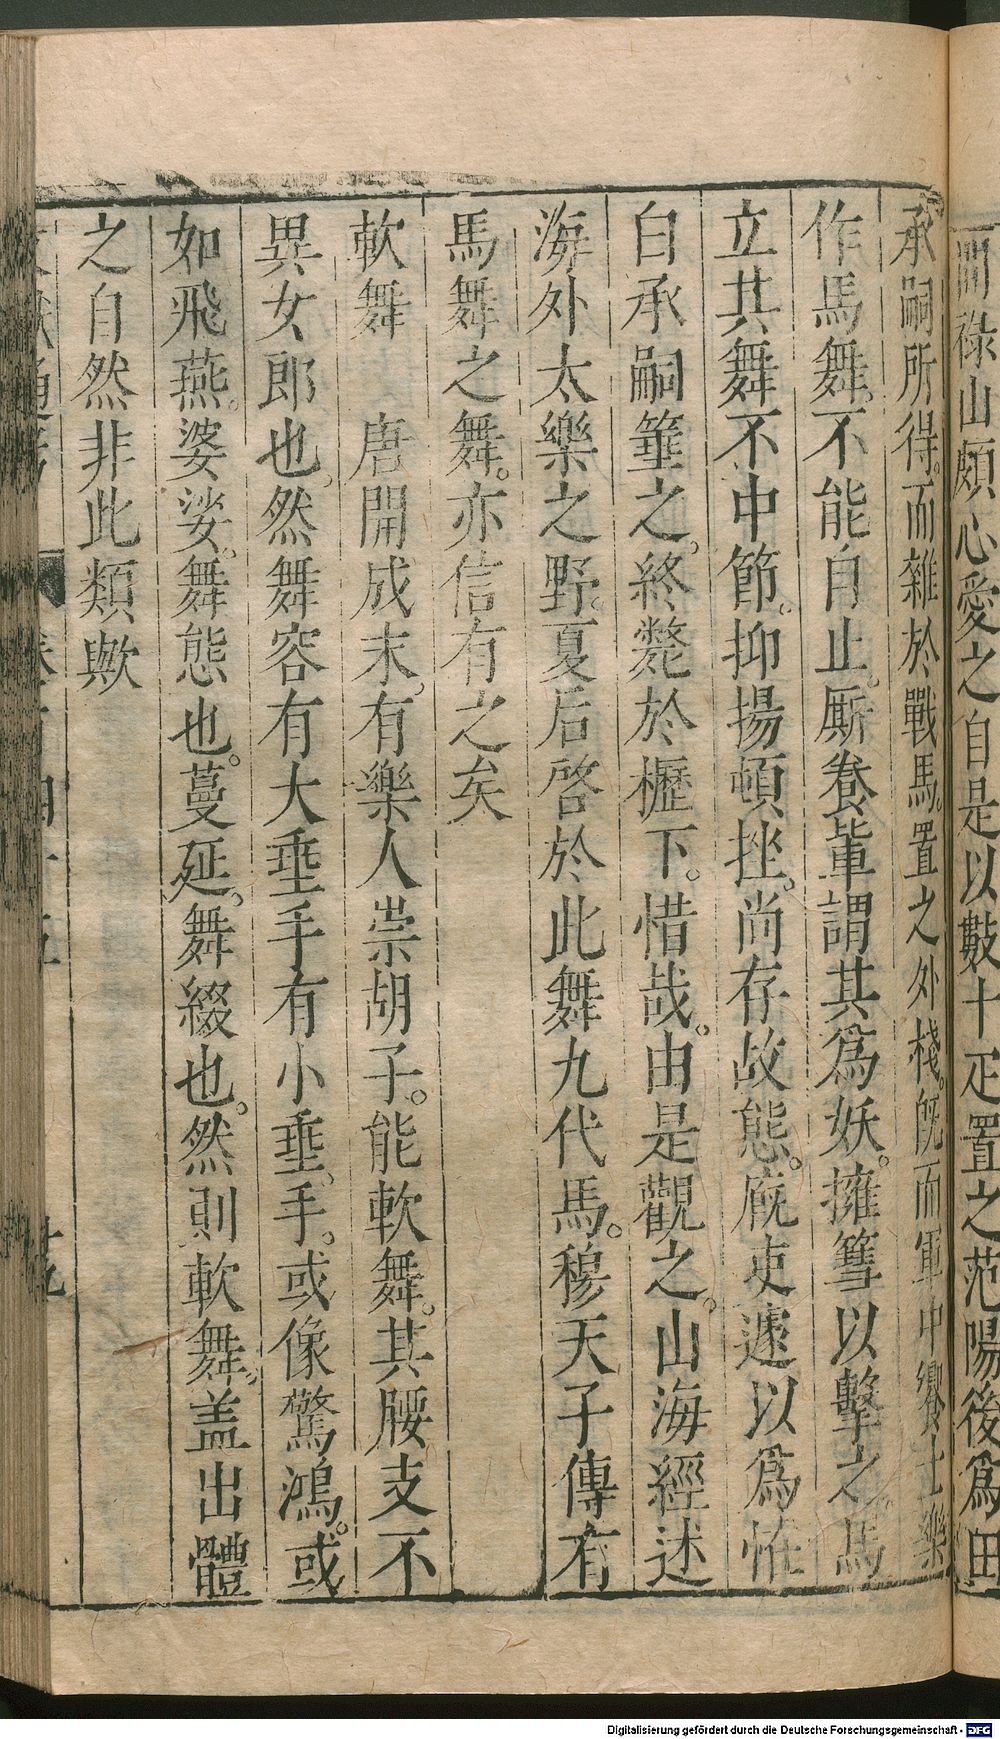 間祿山頗心愛之自是以數十疋置之范陽後爲田
承嗣所得。而雜於戰馬。置之外棧。旣而軍中饗士樂
作馬舞。不能自止。厮養輩謂其爲妖。擁篲以擊之。馬
立其舞不中節。抑揚頓挫。尚存故態。廐吏遽以爲恠
白承嗣箠之。終斃於櫪下。惜哉。由是觀之。山海經述
海外太樂之野。夏后啓於此舞九代馬。穆天子傳有
馬舞之舞。亦信有之矣
軟舞　唐開成末。有樂人崇胡子。能軟舞。其腰支不
異女郎也。然舞容有大垂手有小垂手。或像驚鴻。或
如飛燕。婆娑。舞態也。蔓延。舞綴也。然則軟舞。盖出體
之自然非此類歟
Digitalisierung gefördert durch die Deutsche Forschungsgemeinschaft - DFG